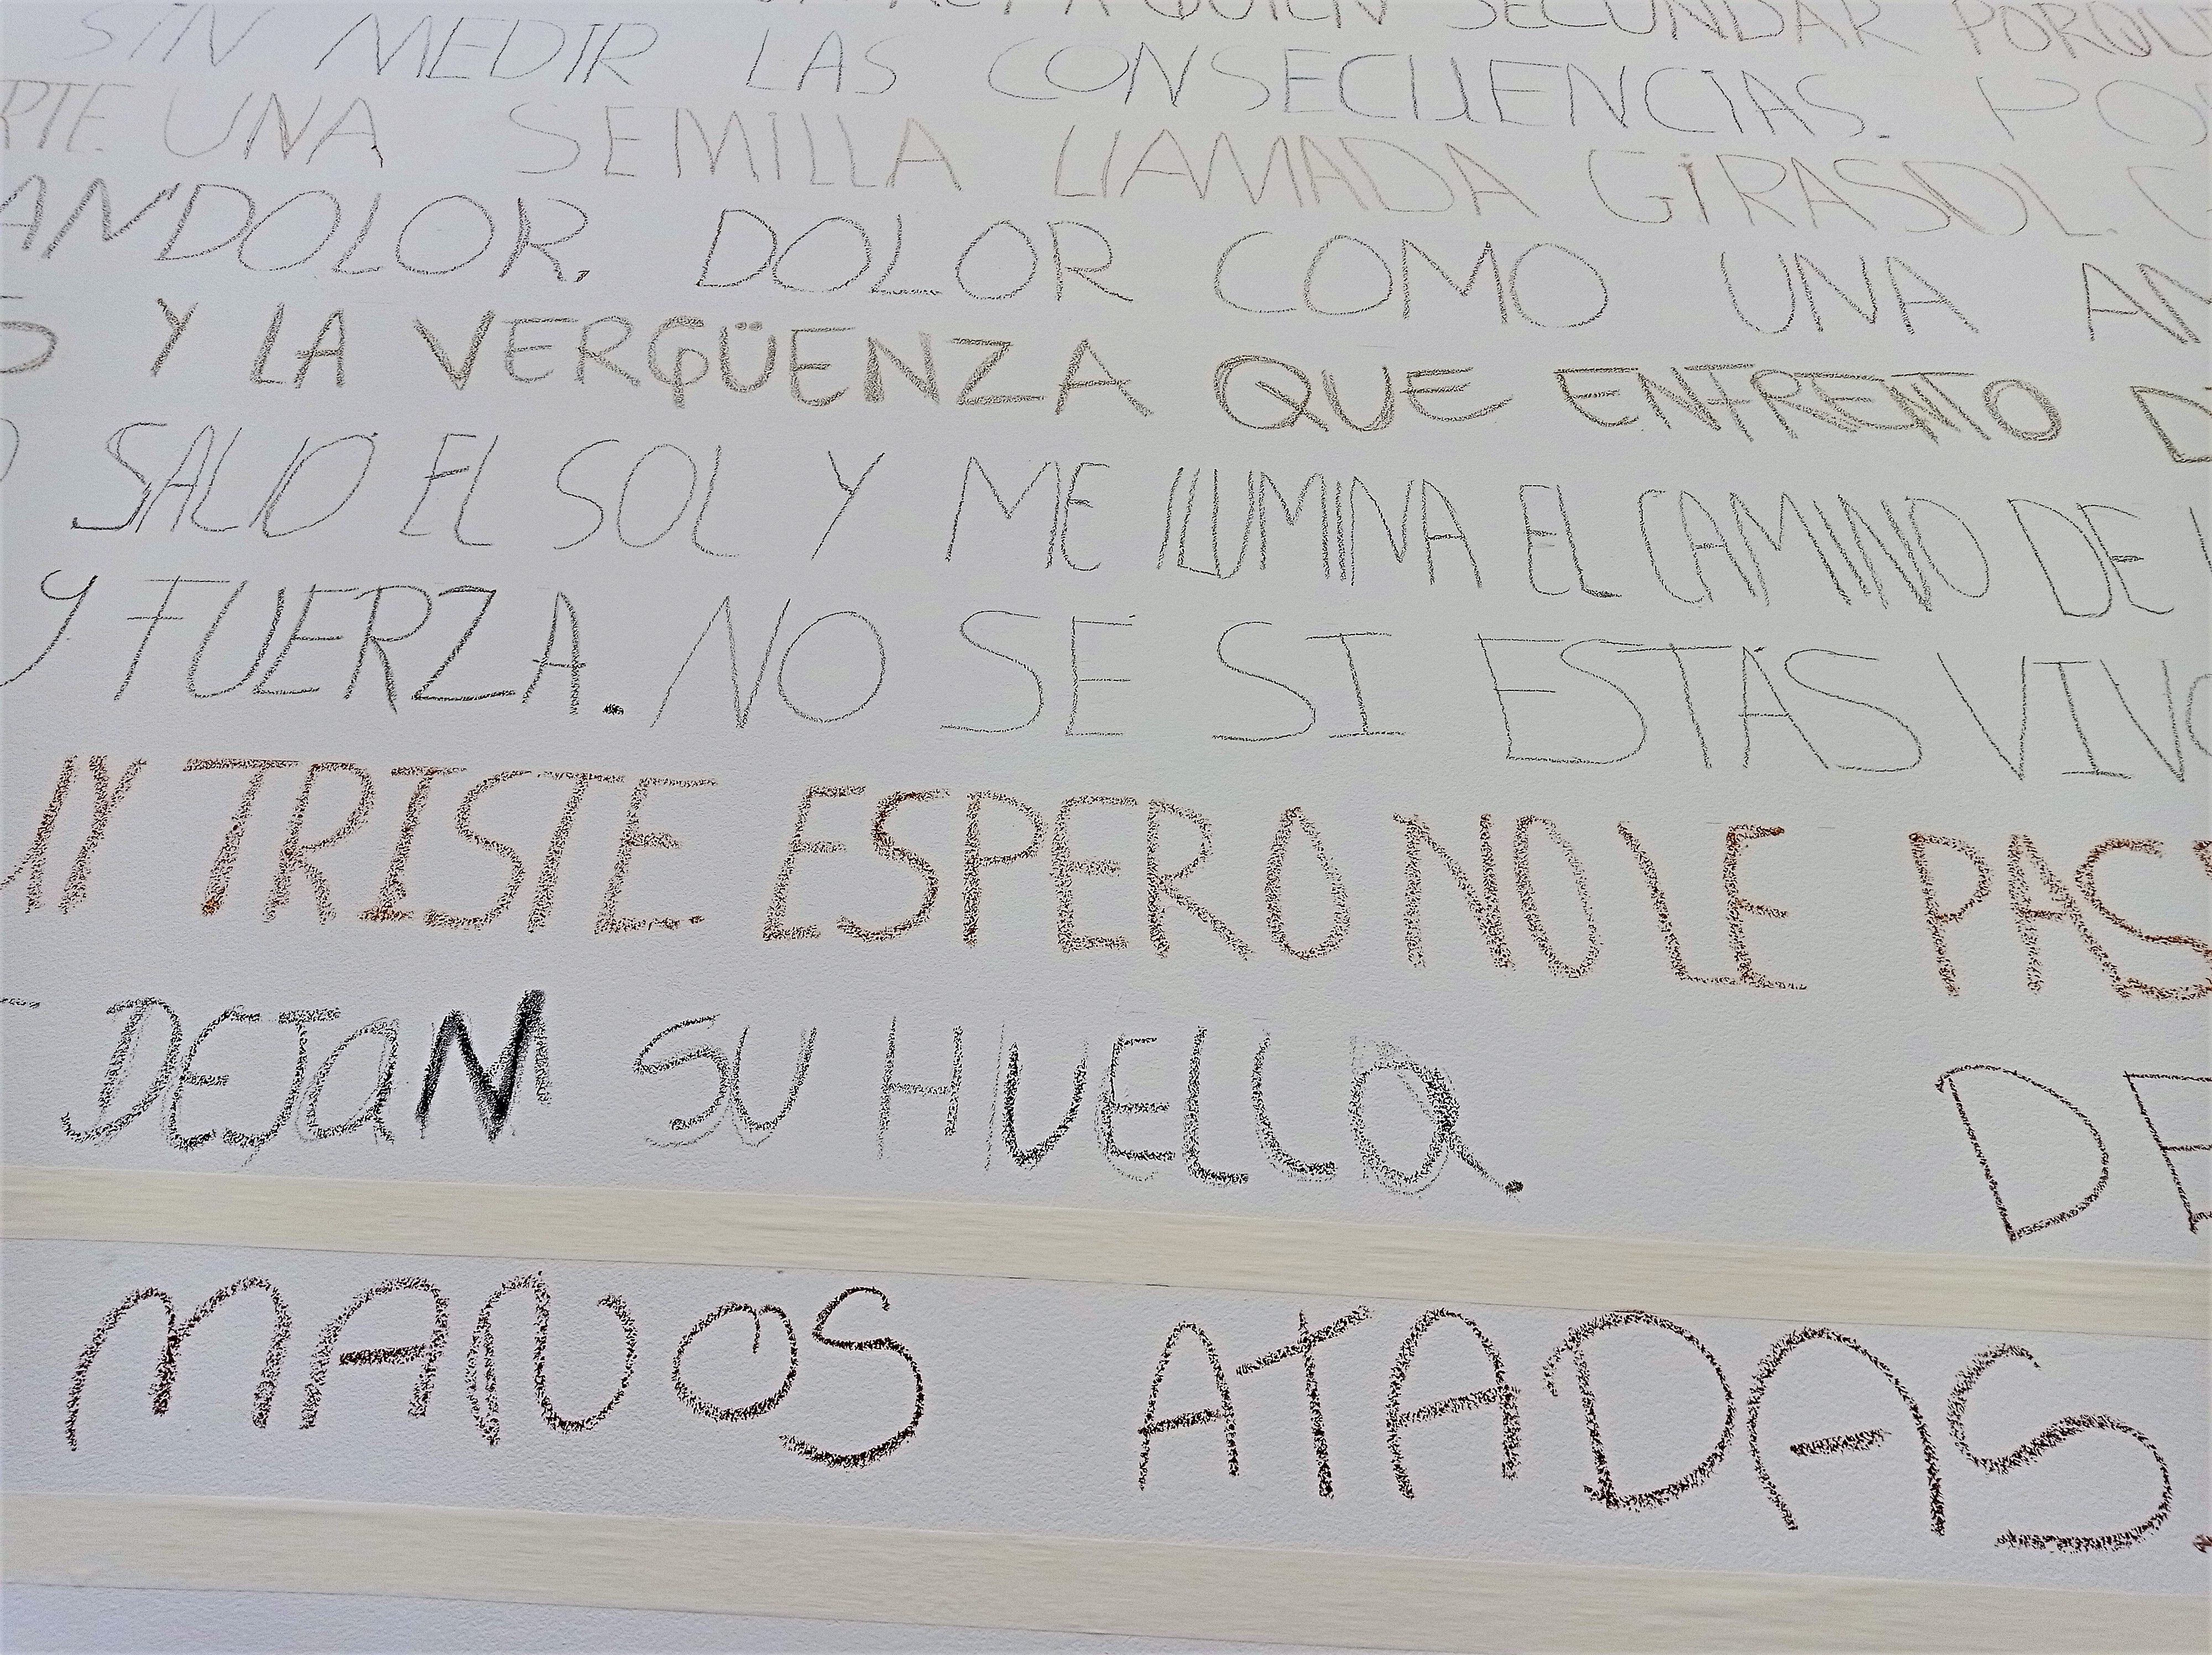 A QUIEN SECUNDAR PORQUE
SIN MEDIR LAS CONSECUENCIAS. PO
RTE UNA SEMILLA LLAMADA GIRASOL. C
AN DOLOR. DOLOR COMO UNA AN
O Y LA VERGÜENZA QUE ENFRENTO D
O SALIO EL SOL Y ME ILUMINA EL CAMINO DE
Y FUERZA. NO SE SI ESTÁS VIVO
UY TRISTE. ESPERO NO LE PAS
DEJAN SU HUELLA. DE
MANOS ATADAS.